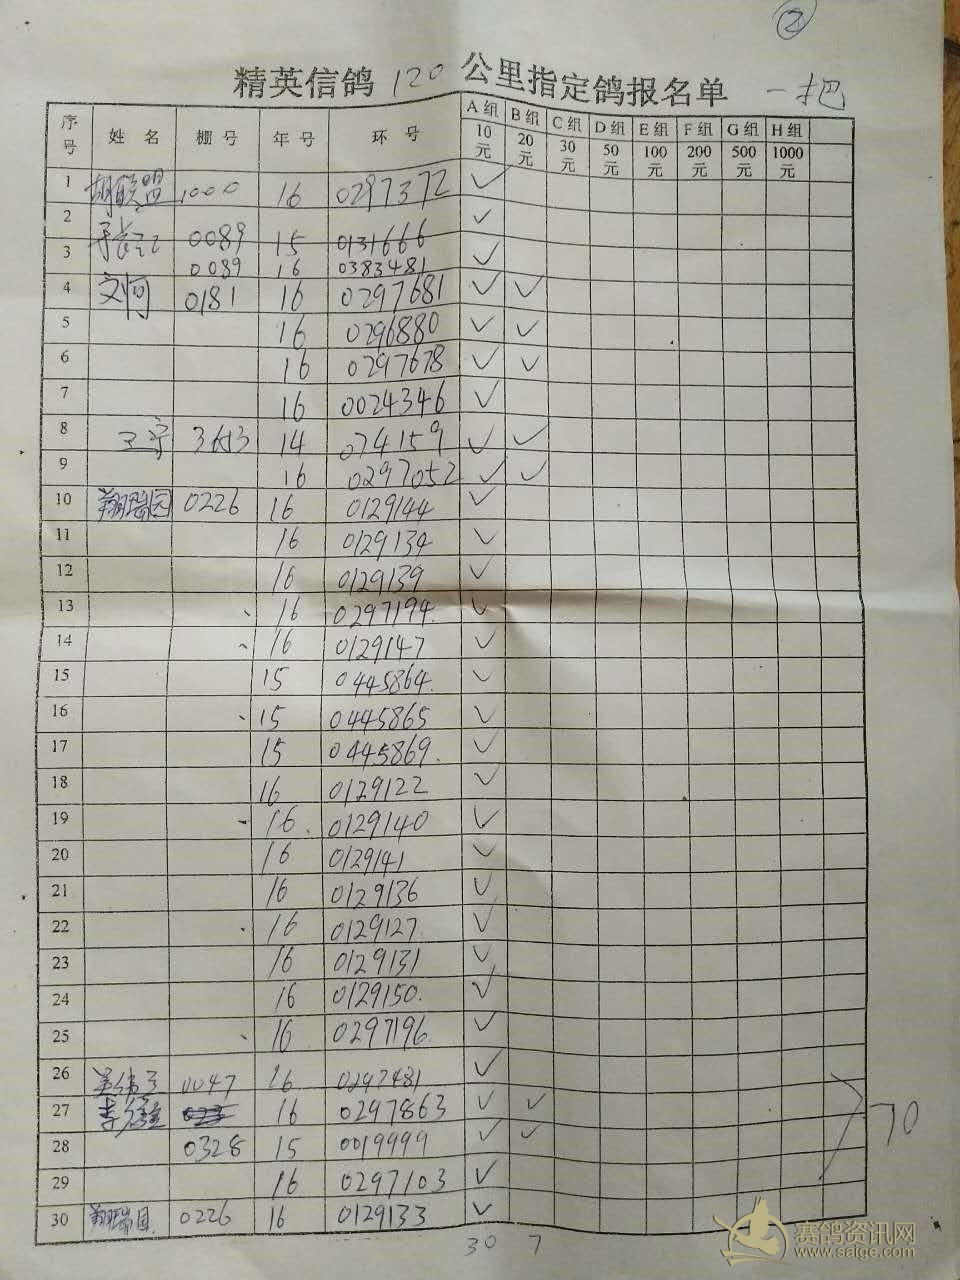 ②
精英信鸽 120 公里指定鸽报名单 一把
序号 姓名 棚号 年号 环号 A组 10元 B组 20元 C组 30元 D组 50元 E组 100元 F组 200元 G组 500元 H组 1000元
1 胡联盟 1000 16 0297372 ✓
2 0089 15 0131666 ✓
3 0089 16 0383481 ✓
4 文何 0181 16 0297681 ✓ ✓
5 16 0296880 ✓ ✓
6 16 0297678 ✓ ✓
7 16 0024346 ✓
8 王宇 14 074159 ✓ ✓
9 16 0297052 ✓ ✓
10 翔瑞园 0226 16 0129144 ✓
11 16 0129134 ✓
12 16 0129139 ✓
13 16 0297194 ✓
14 16 0129147 ✓
15 15 0445864 ✓
16 15 0445865 ✓
17 15 0445869 ✓
18 16 0129122 ✓
19 16 0129140 ✓
20 16 0129141 ✓
21 16 0129136 ✓
22 16 0129127 ✓
23 16 0129131 ✓
24 16 0129150 ✓
25 16 0297196 ✓
26 0047 16 0297481 ✓
27 16 0297863 ✓ ✓
28 0328 15 0019999 ✓ ✓
29 16 0297103 ✓
30 翔瑞园 0226 16 0129133 ✓
70
30 7
赛鸽资讯网
www.saige.com